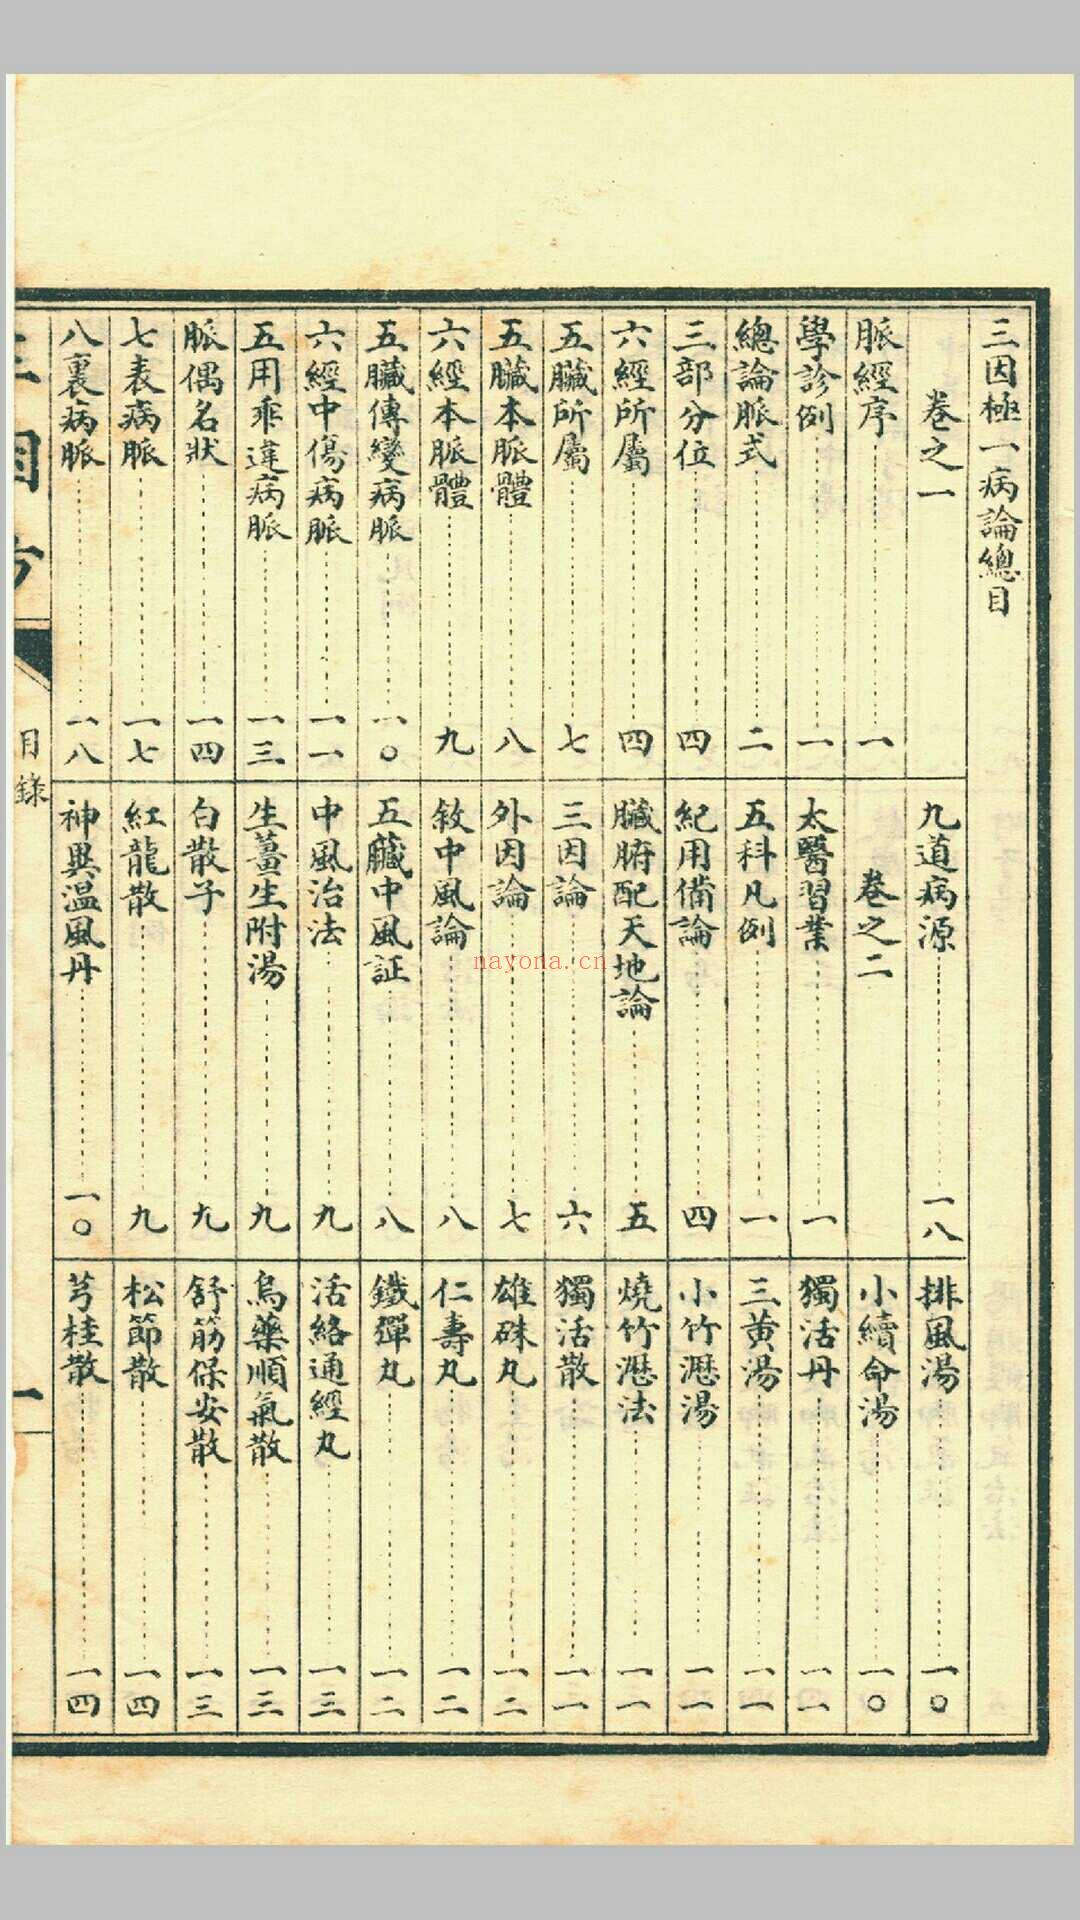 三因極一病論總目
卷之一
脈經序 一
學診例 一
總論脈式 二
三部分位 四
六經所屬 四
五臟所屬 七
五臟本脈體 八
六經本脈體 九
五臟傳變病脈 一〇
六經中傷病脈 一一
五用乖違病脈 一三
脈偶名狀 一四
七表病脈 一七
八裏病脈 一八
九道病源 一八
卷之二
太醫習業 一
五科凡例 一
紀用備論 四
臟腑配天地論 五
三因論 六
外因論 七
敘中風論 八
五臟中風証 八
中風治法 九
生薑生附湯 九
白散子 九
紅龍散 九
神異温風丹 一〇
排風湯 一〇
小續命湯 一〇
獨活丹 一一
三黃湯 一一
小竹瀝湯 一一
燒竹瀝法 一一
獨活散 一一
雄硃丸 一二
仁壽丸 一二
鐵彈丸 一二
活絡通經丸 一三
烏藥順氣散 一三
舒筋保安散 一三
松節散 一四
芎桂散 一四
三因方
目錄
一
nayona.cn